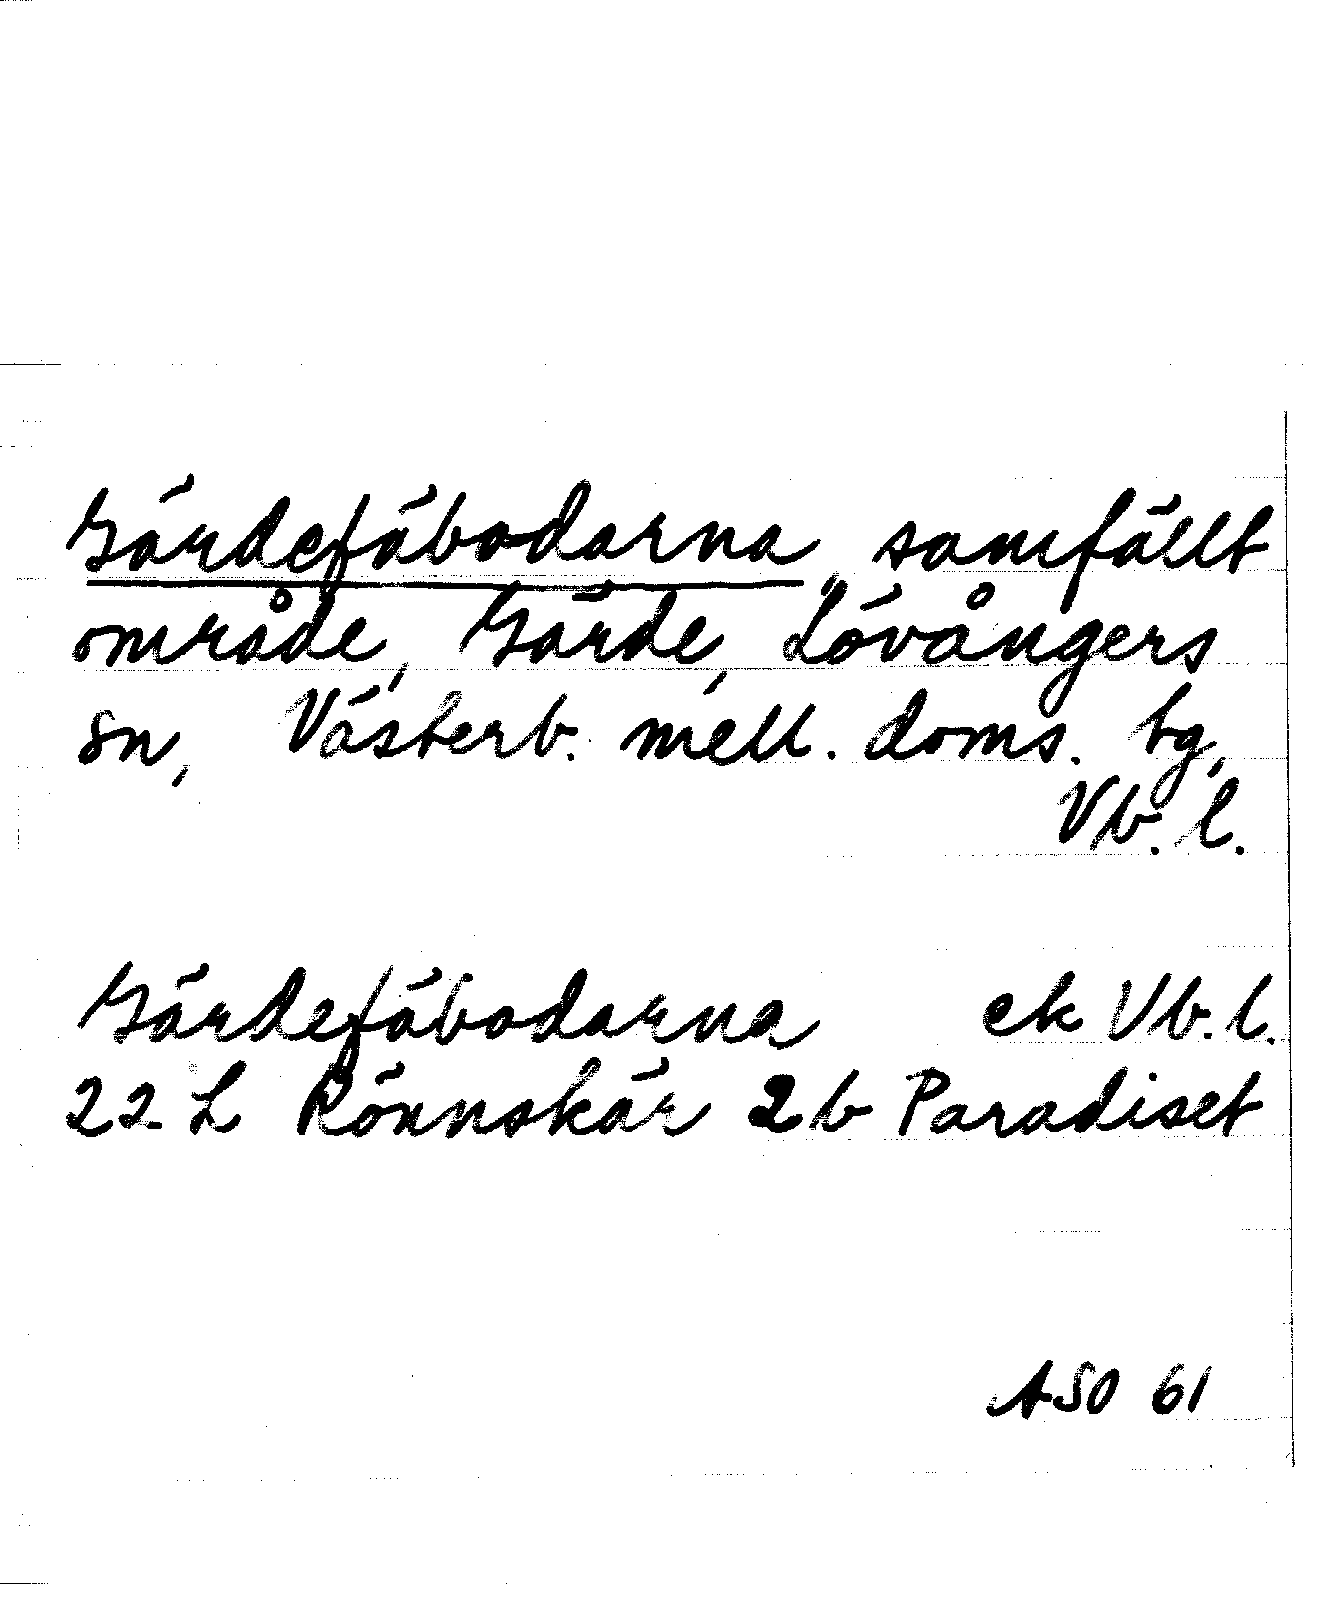 Gärdefäbodarna, samfällt
område, Gärde, Lövångers
sn, Västerb. mell. doms. tg,
Vb. l.
Gärdefäbodarna ek Vb. l.
22 L Rönnskär 2b Paradiset
ASO 61